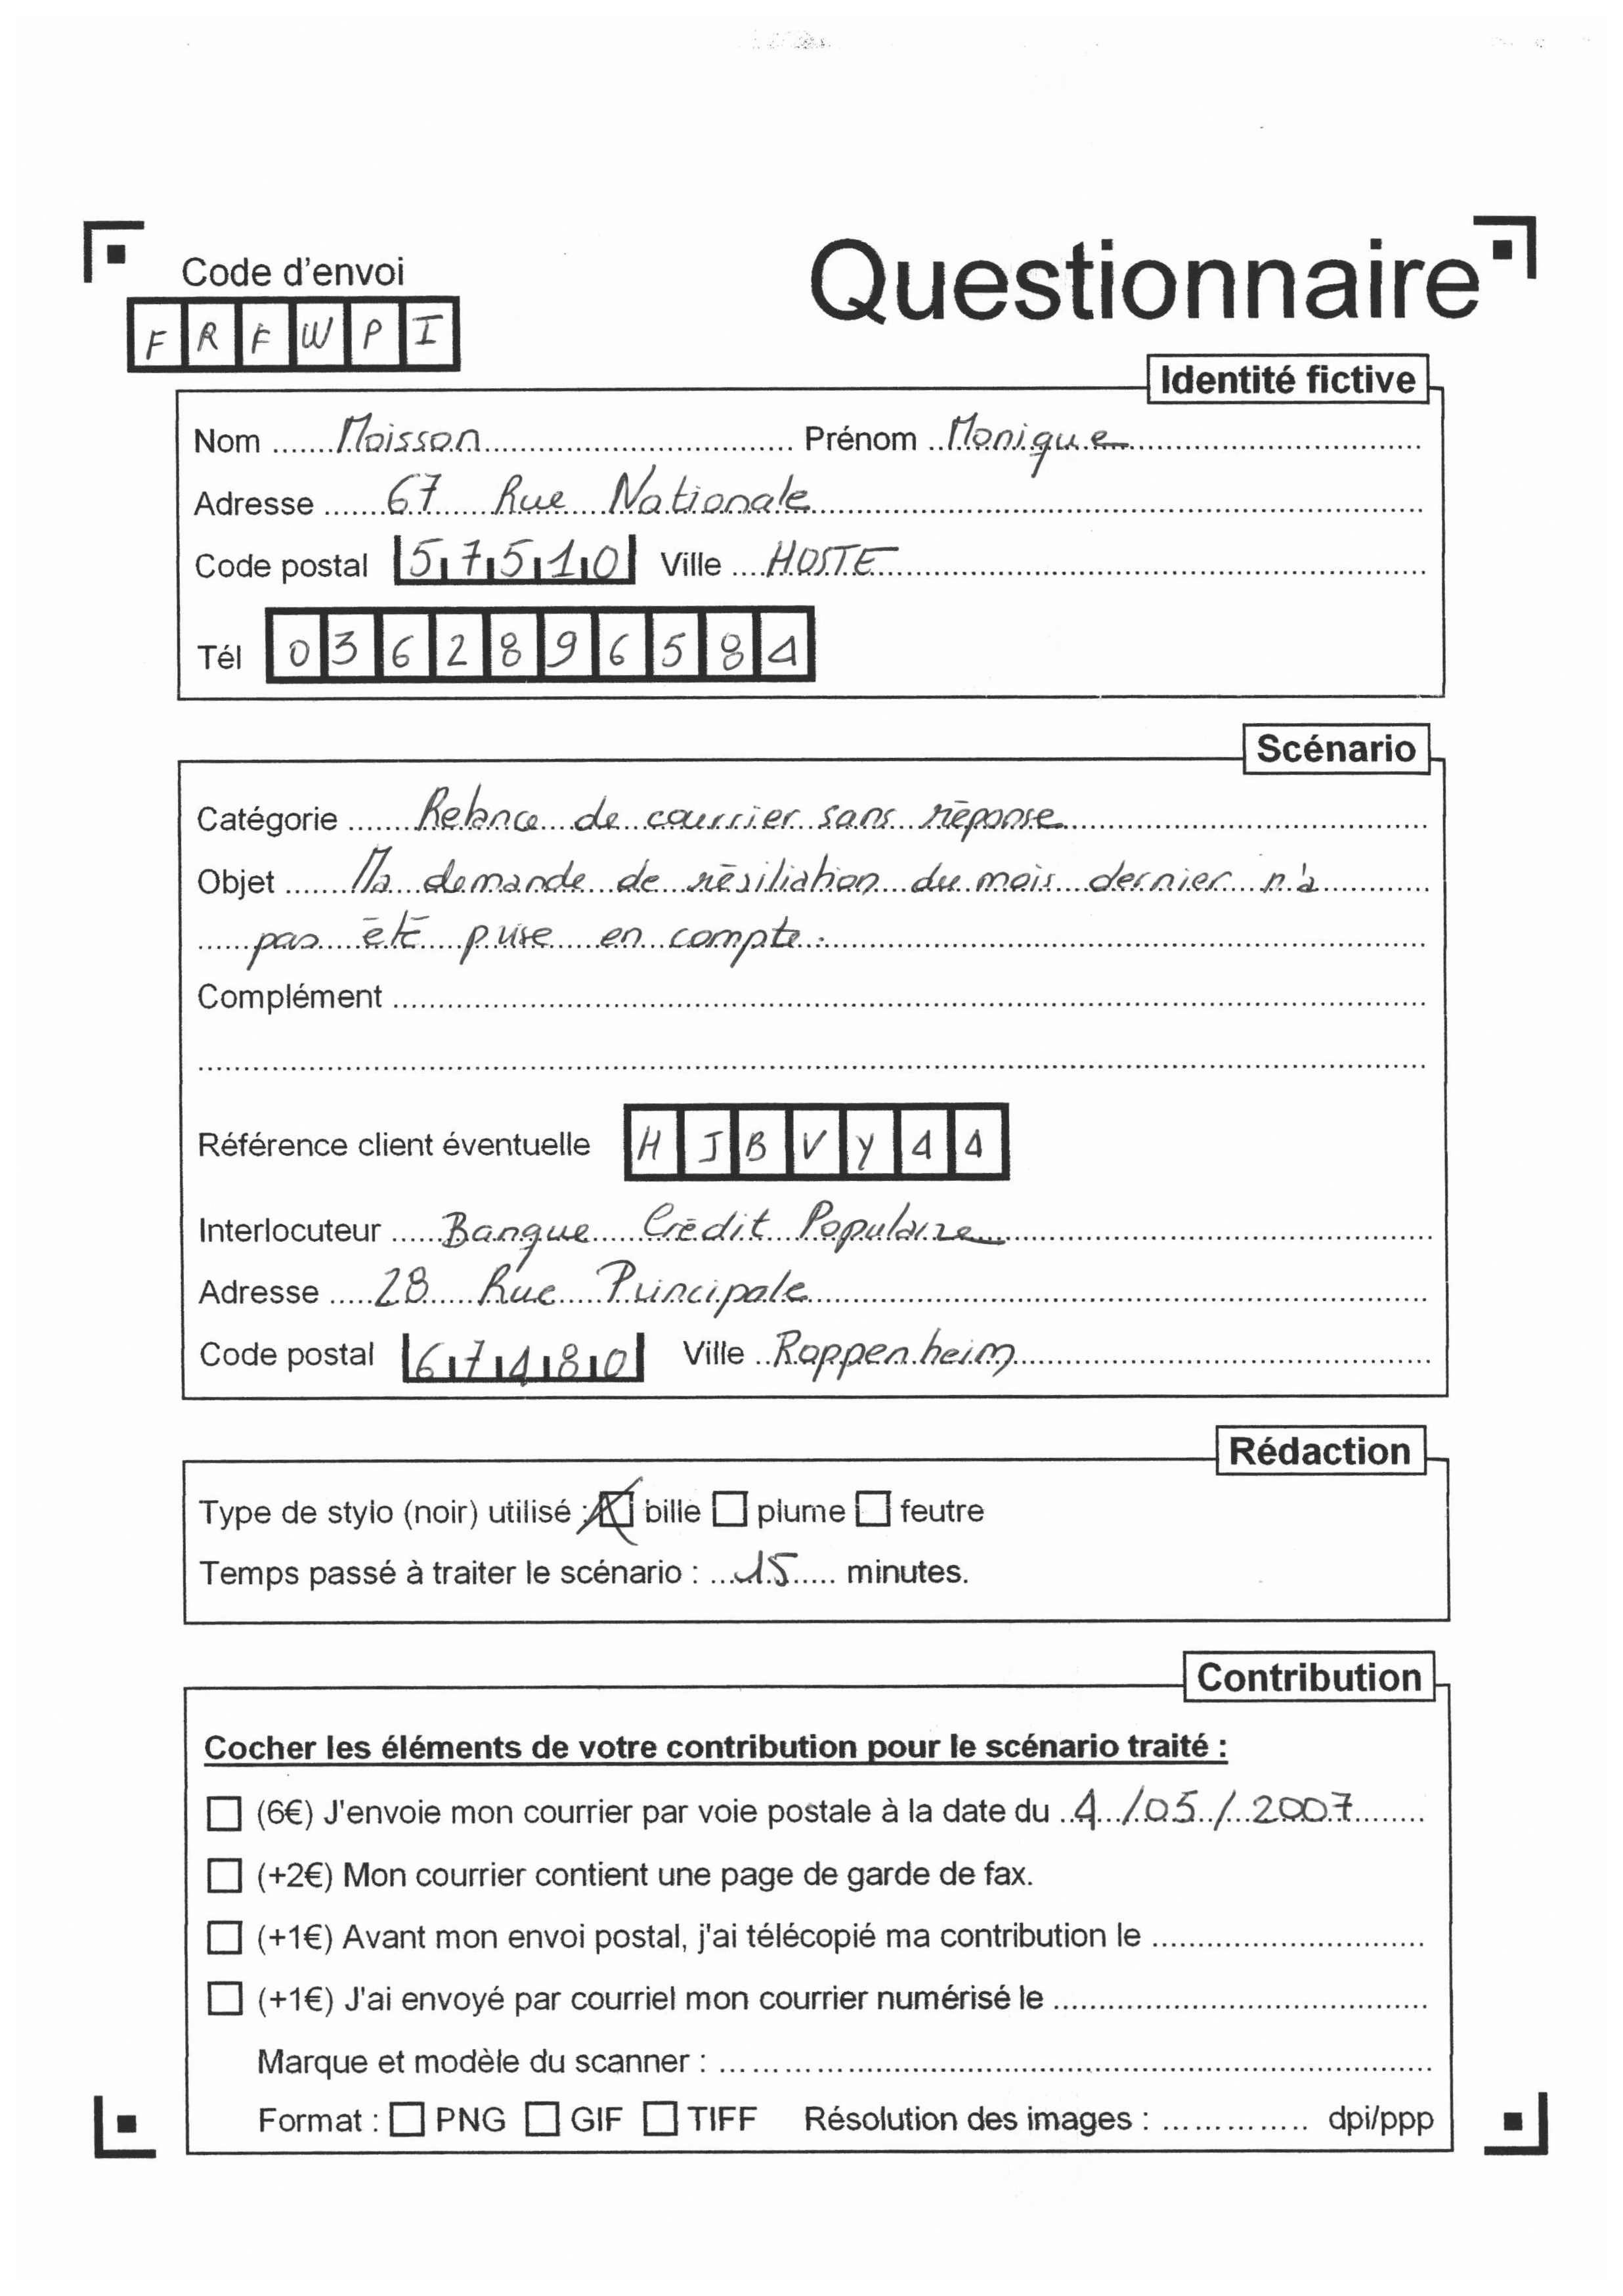 Code d'envoi
Questionnaire
F R F W P I
Identité fictive
Nom Moisson Prénom Monique
Adresse 67 Rue Nationale
Code postal 57510 Ville HOSTE
Tél 0362896584
Scénario
Catégorie Relance de courrier sans réponse
Objet Ma demande de résiliation du mois dernier n'a
pas été prise en compte.
Complément
Référence client éventuelle H J B V Y 4 4
Interlocuteur Banque Crédit Populaire
Adresse 28 Rue Principale
Code postal 67480 Ville Roppenheim
Rédaction
Type de stylo (noir) utilisé : bille plume feutre
Temps passé à traiter le scénario : 15 minutes.
Contribution
Cocher les éléments de votre contribution pour le scénario traité :
(6€) J'envoie mon courrier par voie postale à la date du 4/05/2007
(+2€) Mon courrier contient une page de garde de fax.
(+1€) Avant mon envoi postal, j'ai télécopié ma contribution le
(+1€) J'ai envoyé par courriel mon courrier numérisé le
Marque et modèle du scanner :
Format : PNG GIF TIFF Résolution des images : dpi/ppp